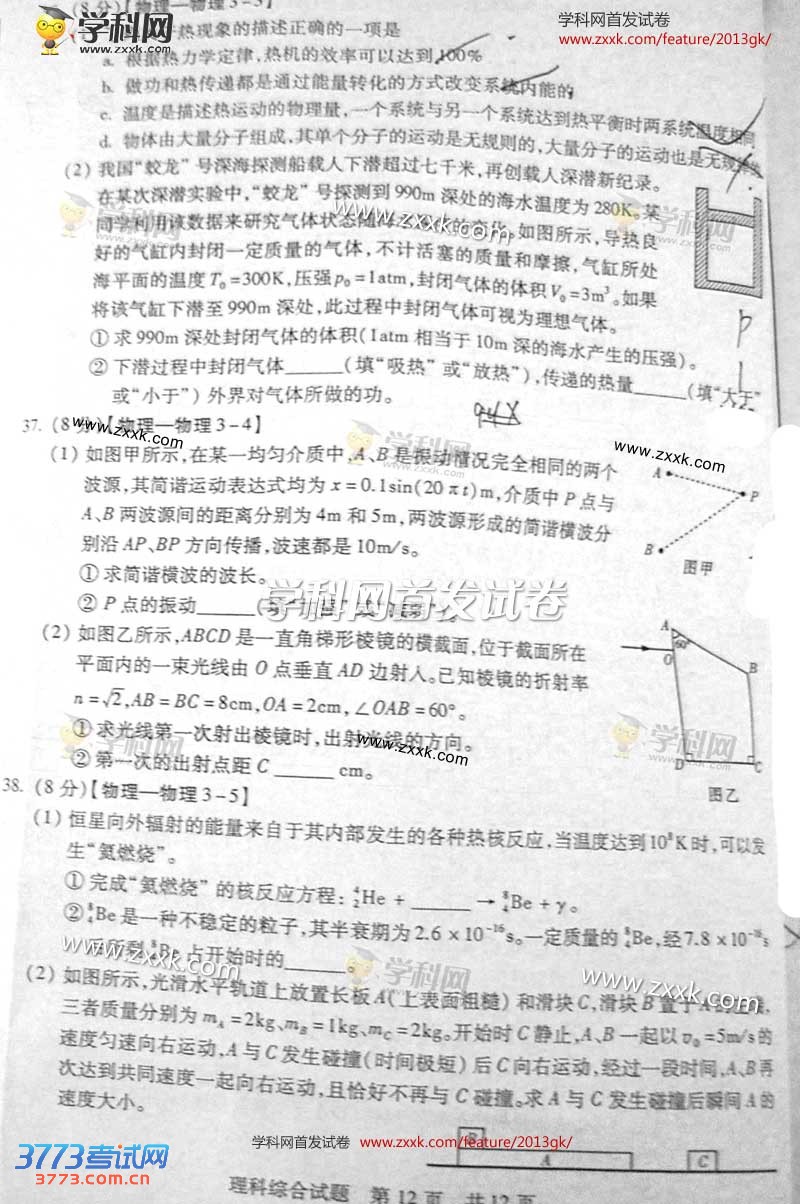 (8分)【物理—物理3-3】
学科网首发试卷
www.zxxk.com/feature/2013gk/
学科网
www.zxxk.com
热现象的描述正确的一项是
a. 根据热力学定律,热机的效率可以达到100%
b. 做功和热传递都是通过能量转化的方式改变系统内能的
c. 温度是描述热运动的物理量,一个系统与另一个系统达到热平衡时两系统温度相同
d. 物体由大量分子组成,其单个分子的运动是无规则的,大量分子的运动也是无规
(2) 我国“蛟龙”号深海探测船载人下潜超过七千米,再创载人深潜新纪录。
在某次深潜实验中,“蛟龙”号探测到990m深处的海水温度为280K。某
同学利用该数据来研究气体状态随 的变化,如图所示,导热良
好的气缸内封闭一定质量的气体,不计活塞的质量和摩擦,气缸所处
海平面的温度T₀=300K,压强p₀=1atm,封闭气体的体积V₀=3m³。如果
将该气缸下潜至990m深处,此过程中封闭气体可视为理想气体。
①求990m深处封闭气体的体积(1atm相当于10m深的海水产生的压强)。
②下潜过程中封闭气体______(填“吸热”或“放热”),传递的热量______(填“大于”
或“小于”)外界对气体所做的功。
37. (8分)【物理—物理3-4】
(1) 如图甲所示,在某一均匀介质中,A、B是振动情况完全相同的两个
波源,其简谐运动表达式均为x=0.1sin(20πt)m,介质中P点与
A、B两波源间的距离分别为4m和5m,两波源形成的简谐横波分
别沿AP、BP方向传播,波速都是10m/s。
①求简谐横波的波长。
②P点的振动______
A
P
B
图甲
学科网首发试卷
(2) 如图乙所示,ABCD是一直角梯形棱镜的横截面,位于截面所在
平面内的一束光线由O点垂直AD边射入。已知棱镜的折射率
n=√2,AB=BC=8cm,OA=2cm,∠OAB=60°。
①求光线第一次射出棱镜时,出射光线的方向。
②第一次的出射点距C______cm。
A
60°
O
B
D
C
图乙
38. (8分)【物理—物理3-5】
(1) 恒星向外辐射的能量来自于其内部发生的各种热核反应,当温度达到10⁸K时,可以发
生“氦燃烧”。
①完成“氦燃烧”的核反应方程:⁴₂He+______→⁸₄Be+γ。
②⁸₄Be是一种不稳定的粒子,其半衰期为2.6×10⁻¹⁶s。一定质量的⁸₄Be,经7.8×10⁻¹⁶s
占开始时的______。
(2) 如图所示,光滑水平轨道上放置长板A(上表面粗糙)和滑块C,滑块B置于A的
三者质量分别为m_A=2kg、m_B=1kg、m_C=2kg。开始时C静止,A、B一起以v₀=5m/s的
速度匀速向右运动,A与C发生碰撞(时间极短)后C向右运动,经过一段时间,A、B再
次达到共同速度一起向右运动,且恰好不再与C碰撞。求A与C发生碰撞后瞬间A的
速度大小。
B
A
C
3773考试网
3773.com.cn
学科网首发试卷 www.zxxk.com/feature/2013gk/
理科综合试题 第12页 共12页